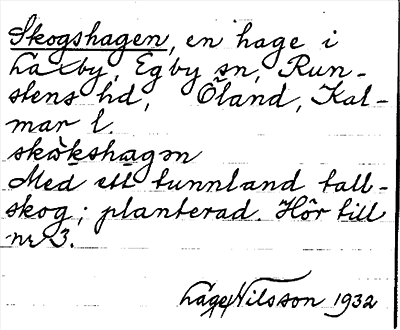 Skogshagen, en hage i
Laxby, Egby sn, Run-
stens hd, Öland, Kal-
mar l.
skòkshagən
Med ett tunnland tall-
skog; planterad. Hör till
nr 3.
Låge Nilsson 1932